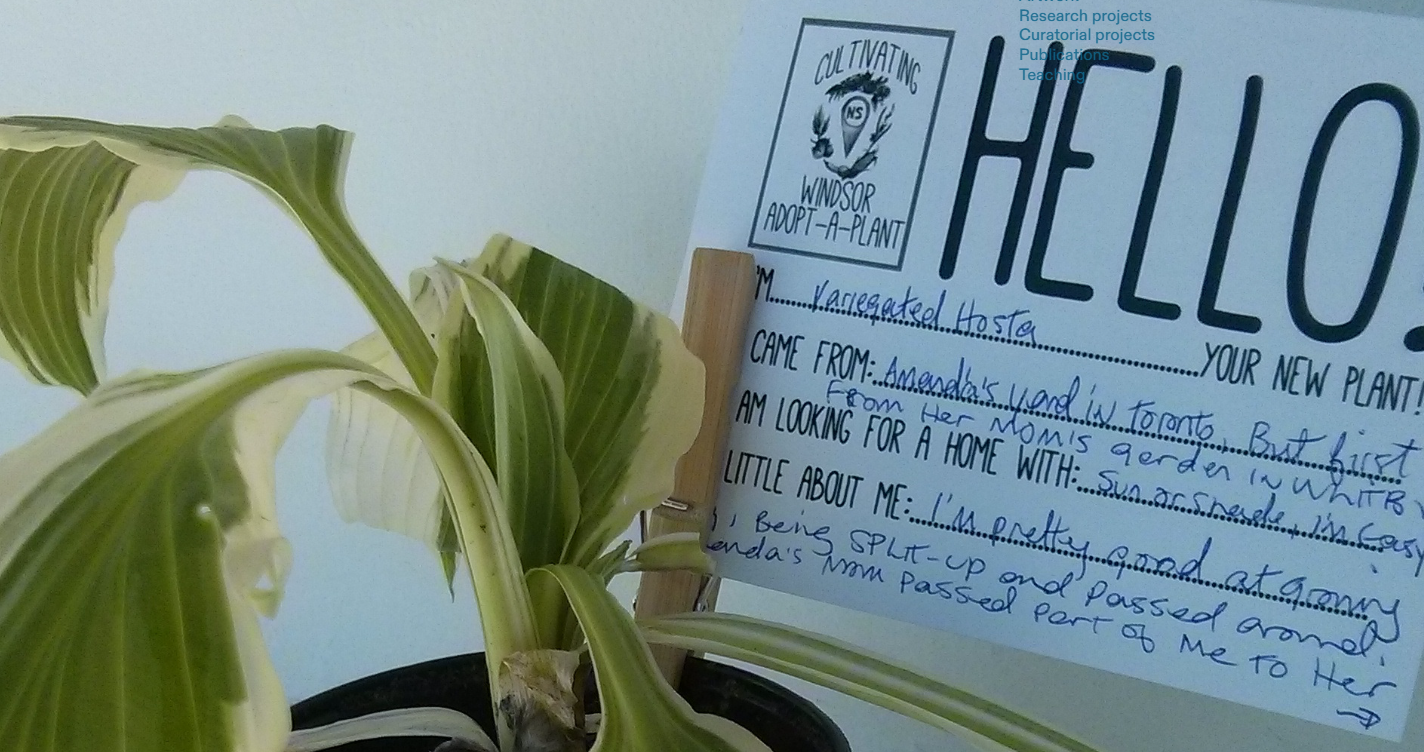 Research projects
Curatorial projects
Publications
Teaching
CULTIVATING
NS
WINDSOR
ADOPT-A-PLANT
HELLO!
I'M Variegated Hosta YOUR NEW PLANT!
CAME FROM: Amanda's yard in Toronto, But first
From Her Mom's garden in WHITBY
AM LOOKING FOR A HOME WITH: Sun or shade, im Easy
LITTLE ABOUT ME: I'm pretty good at growing
, Being SPLIT-up and passed around.
anda's Mom Passed Part of Me to Her
→